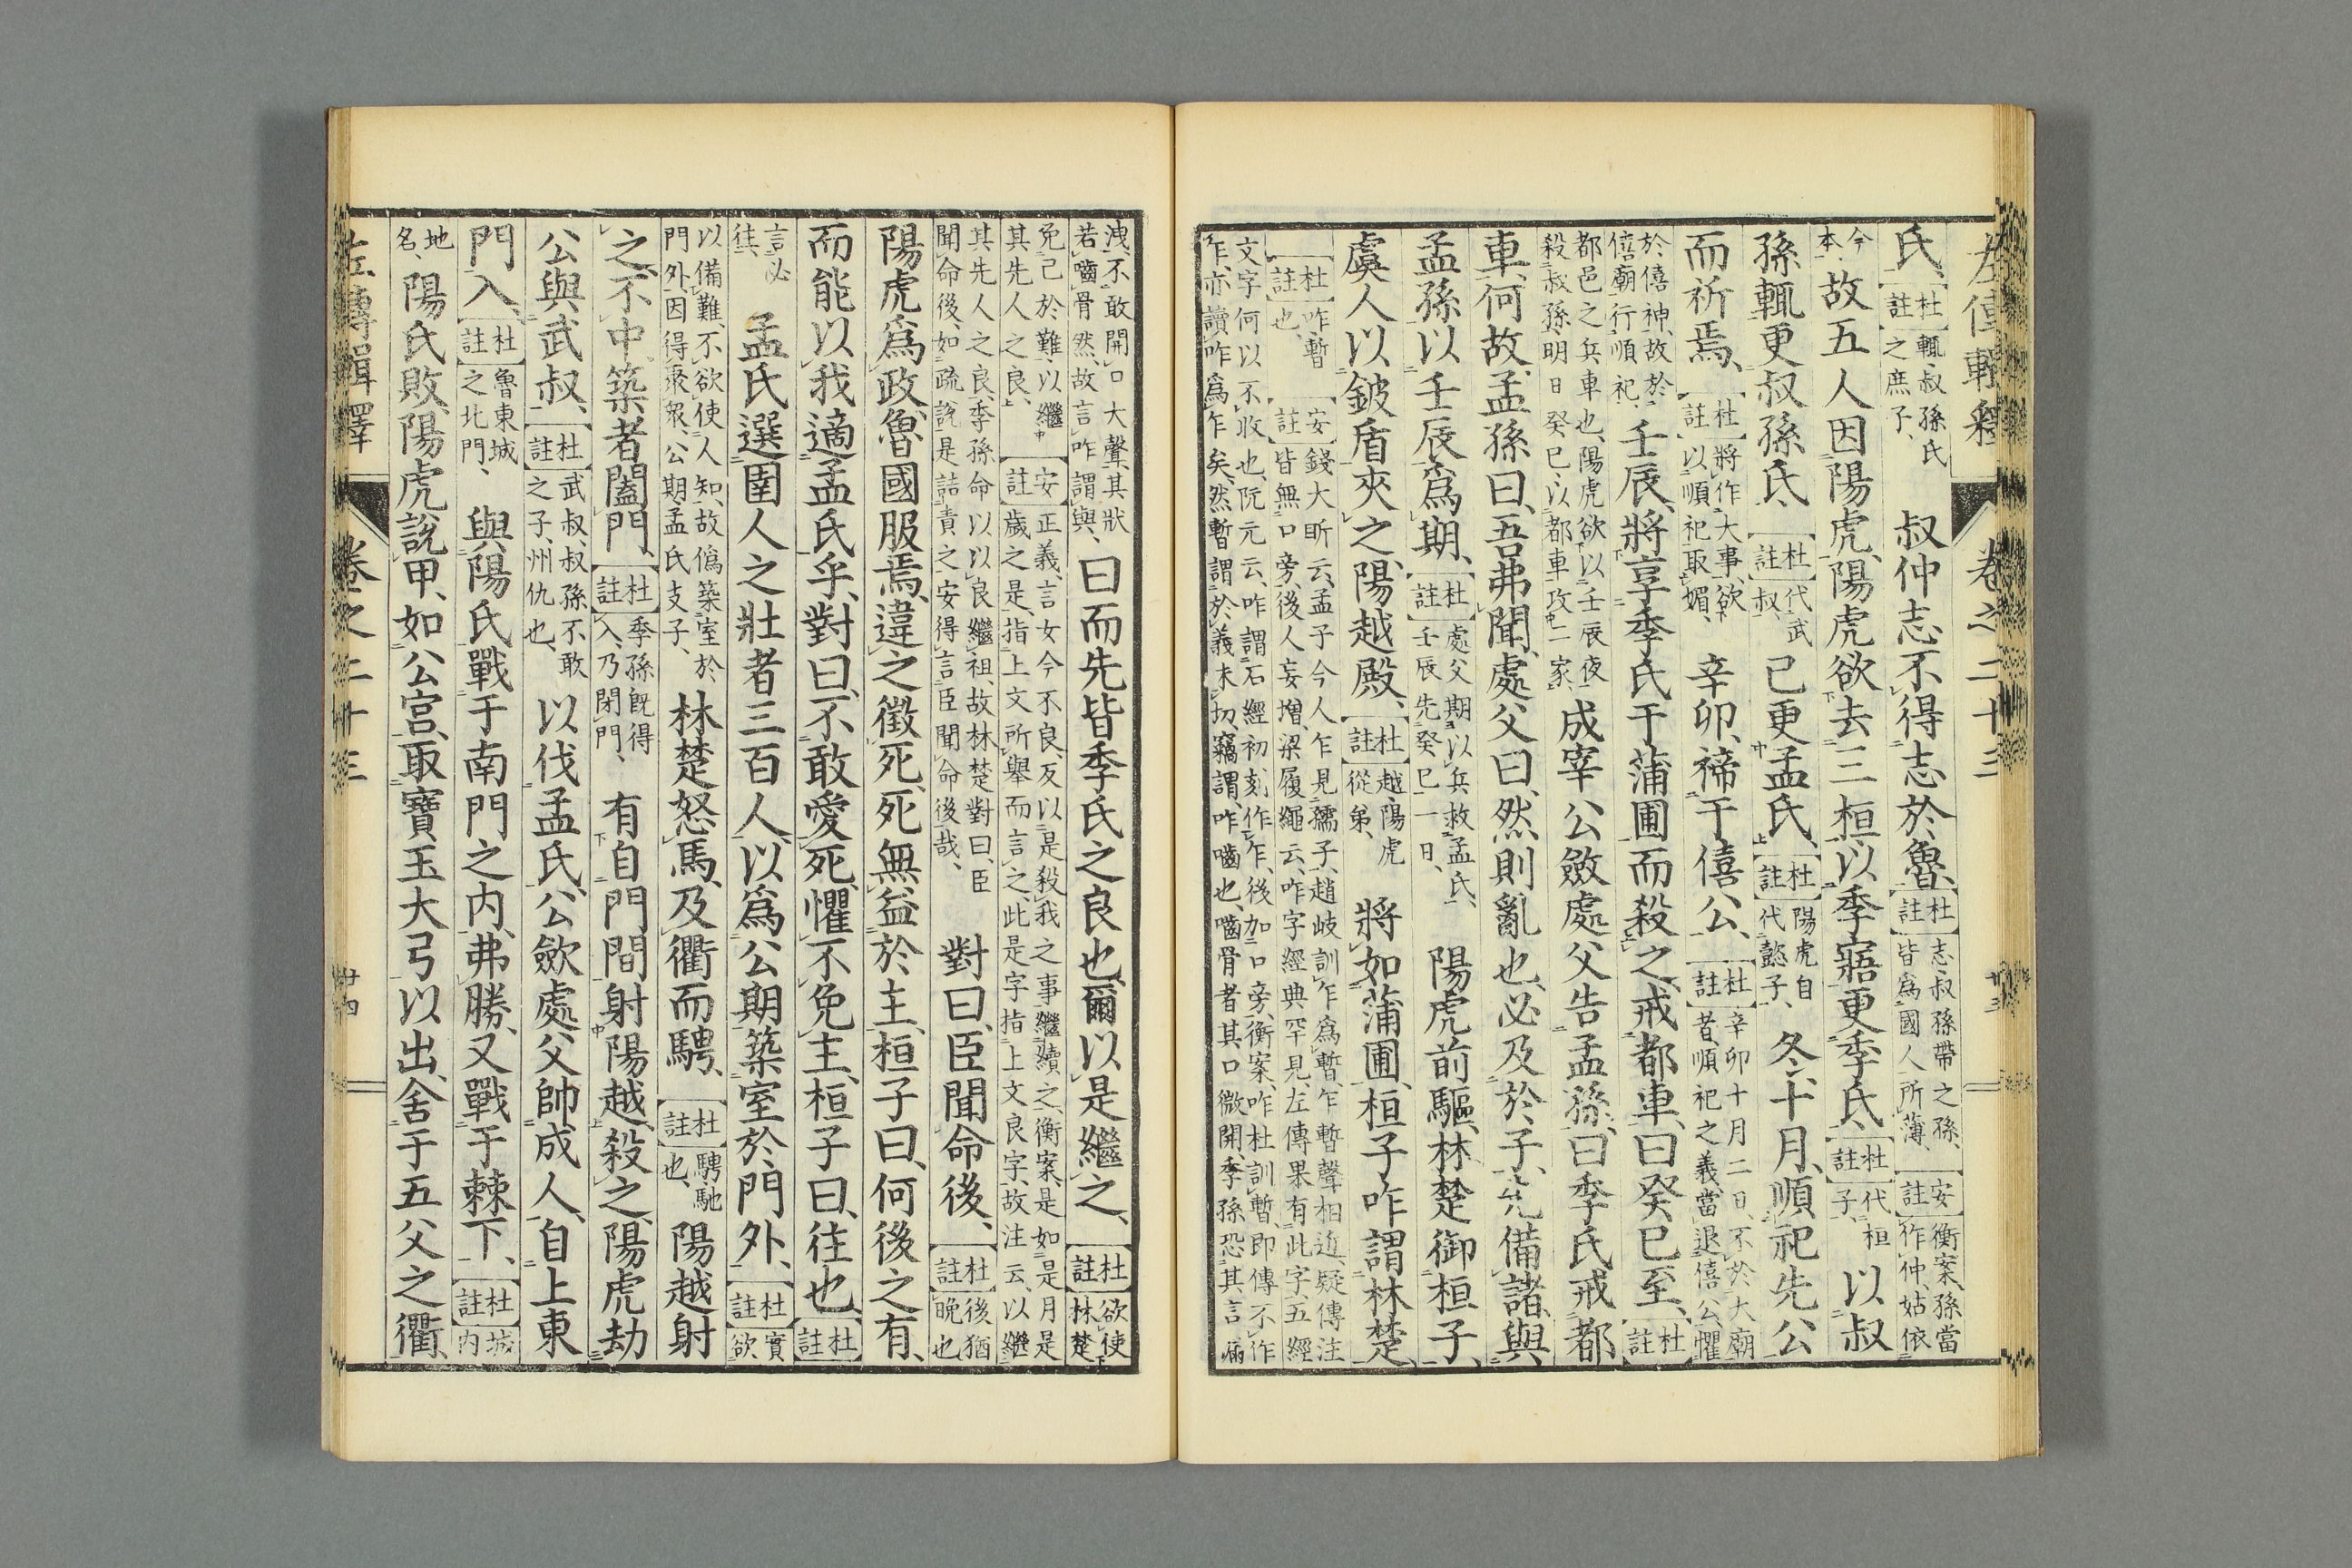 左傳輯釋 卷之二十三 廿三
氏、杜註輒叔孫氏之庶子、叔仲志不得志於魯、杜註志叔孫帶之孫、皆爲國人所薄、安註衡案、孫當作仲、姑依
今本、故五人因陽虎、陽虎欲去三桓、以季寤更季氏、杜註代桓子、以叔
孫輒更叔孫氏、杜註代武叔、己更孟氏、杜註陽虎自代懿子、冬、十月、順祀先公
而祈焉、杜註將作大事、欲以順祀取媚、辛卯、禘于僖公、杜註辛卯十月二日、不於大廟者、順祀之義、當退僖公、懼
於僖神、故於僖廟行順祀、壬辰、將享季氏于蒲圃而殺之、戒都車、曰癸巳至、杜註
都邑之兵車也、陽虎欲以壬辰夜殺叔孫、明日癸巳、以都車攻二家、成宰公斂處父告孟孫、曰季氏戒都
車、何故、孟孫曰、吾弗聞、處父曰、然則亂也、必及於子、先備諸、與
孟孫以壬辰爲期、杜註處父期以兵救孟氏、壬辰先癸巳一日、陽虎前驅、林楚御桓子、
虞人以鈹盾夾之、陽越殿、杜註越陽虎從弟、將如蒲圃、桓子咋謂林楚
杜註咋暫也、安註錢大昕云、孟子今人乍見孺子、趙岐訓乍爲暫、乍暫聲相近、疑傳注皆無口旁、後人妄增、梁履繩云、咋字經典罕見、左傳果有此字、五經
文字何以不收也、阮元云、咋謂石經初刻作乍、後加口旁、衡案、咋杜訓暫、即傳不作乍、亦讀咋爲乍矣、然暫謂於義未切、竊謂、咋嚙也、嚙骨者其口微開、季孫恐其言漏
洩、不敢開口大聲、其狀若嚙骨然、故言咋謂與、曰而先皆季氏之良也、爾以是繼之、杜註欲使林楚
免己於難、以繼其先人之良、安註正義、言女今不良、反以是殺我之事繼續之、衡案、是如是月是歲之是、指上文所舉而言之、此是字指上文良字、故注云、以繼
其先人之良、季孫命以以良繼祖、故林楚對曰、臣聞命後、如疏説、是詰責之、安得言臣聞命後哉、對曰、臣聞命後、杜註後猶晚也
陽虎爲政、魯國服焉、違之徵死、死無益於主、桓子曰、何後之有、
而能以我適孟氏乎、對曰、不敢愛死、懼不免主、桓子曰、往也、杜註
言必往、孟氏選圉人之壯者三百人、以爲公期築室於門外、杜註實欲
以備難、不欲使人知、故僞築室於門外、因得聚衆、公期孟氏支子、林楚怒馬、及衢而騁、杜註騁馳也、陽越射
之、不中、築者闔門、杜註季孫既得入、乃閉門、有自門間射陽越、殺之、陽虎劫
公與武叔、杜註武叔、叔孫不敢之子、州仇也、以伐孟氏、公斂處父帥成人、自上東
門入、杜註魯東城之北門、與陽氏戰于南門之内、弗勝、又戰于棘下、杜註城内
地名、陽氏敗、陽虎說甲、如公宮、取寶玉大弓以出、舍于五父之衢、
左傳輯釋 卷之二十三 廿四